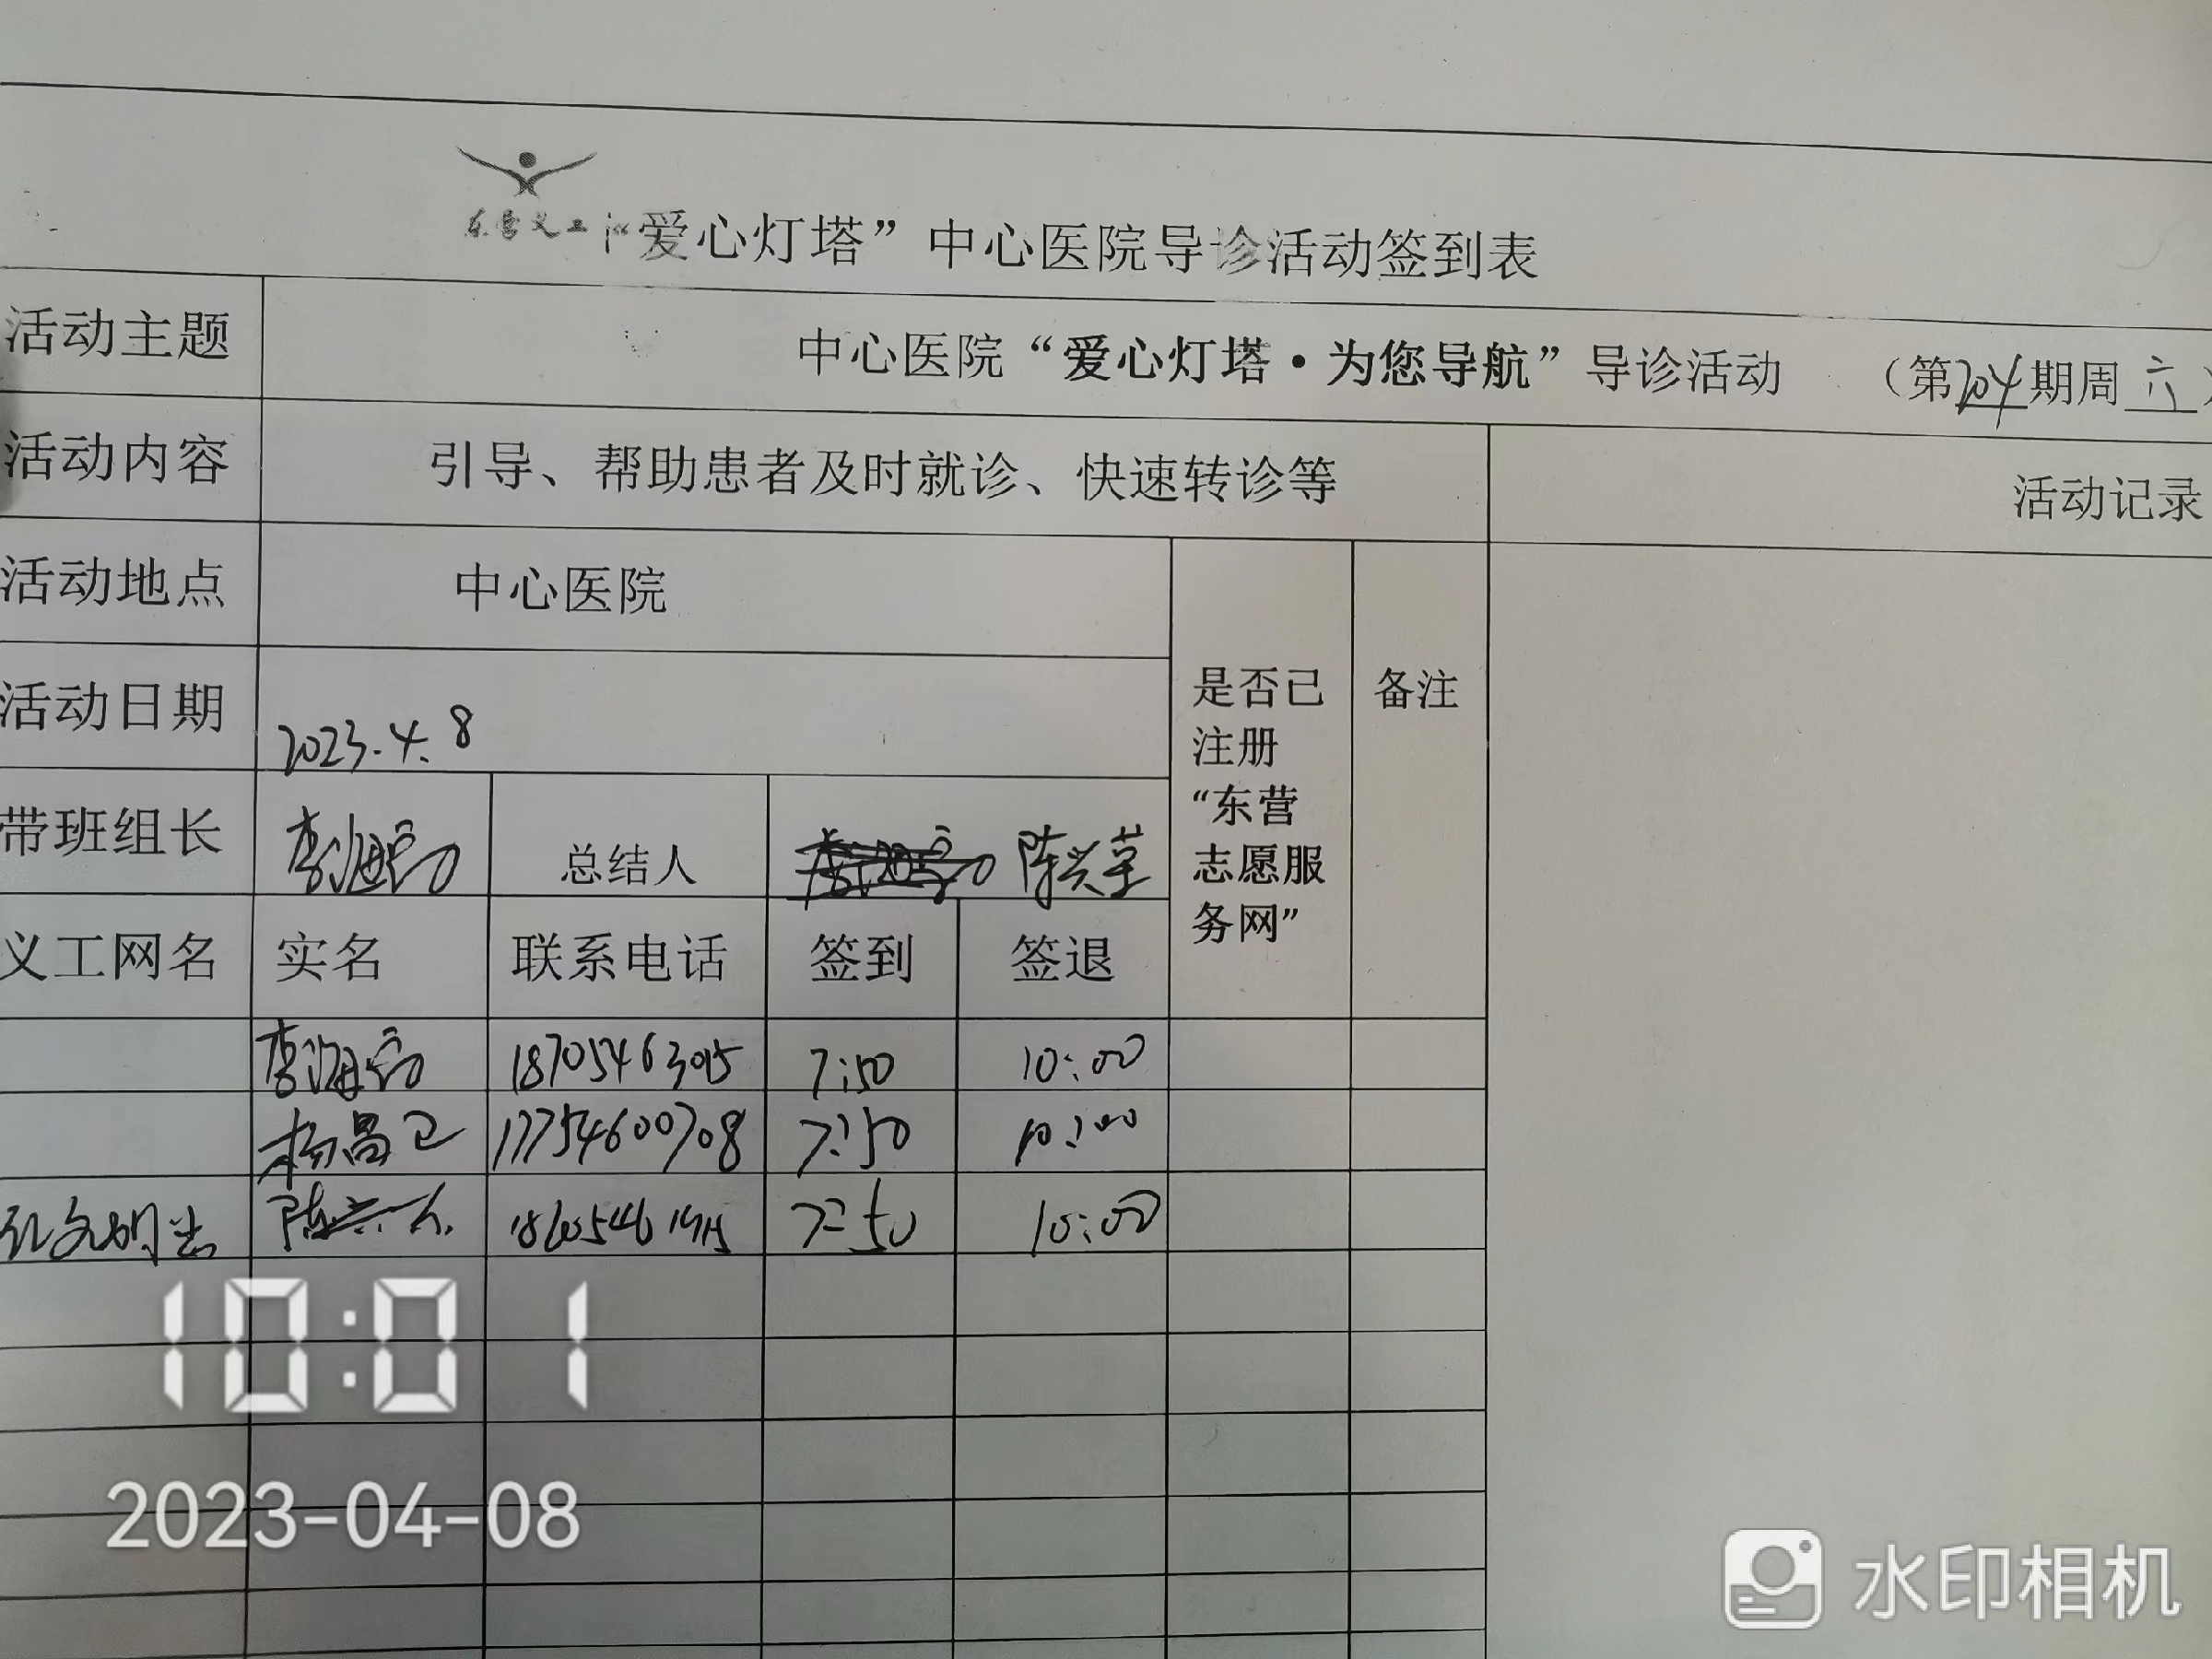 东营义工
“爱心灯塔”中心医院导诊活动签到表
活动主题 中心医院“爱心灯塔·为您导航”导诊活动 （第204期周六）
活动内容 引导、帮助患者及时就诊、快速转诊等 活动记录
活动地点 中心医院
是否已注册“东营志愿服务网” 备注
活动日期 2023.4.8
带班组长 总结人
义工网名 实名 联系电话 签到 签退
18705463015 7:50 10:00
杨昌卫 17754600708 7:50 10:00
7:50 10:00
10:01
2023-04-08
水印相机